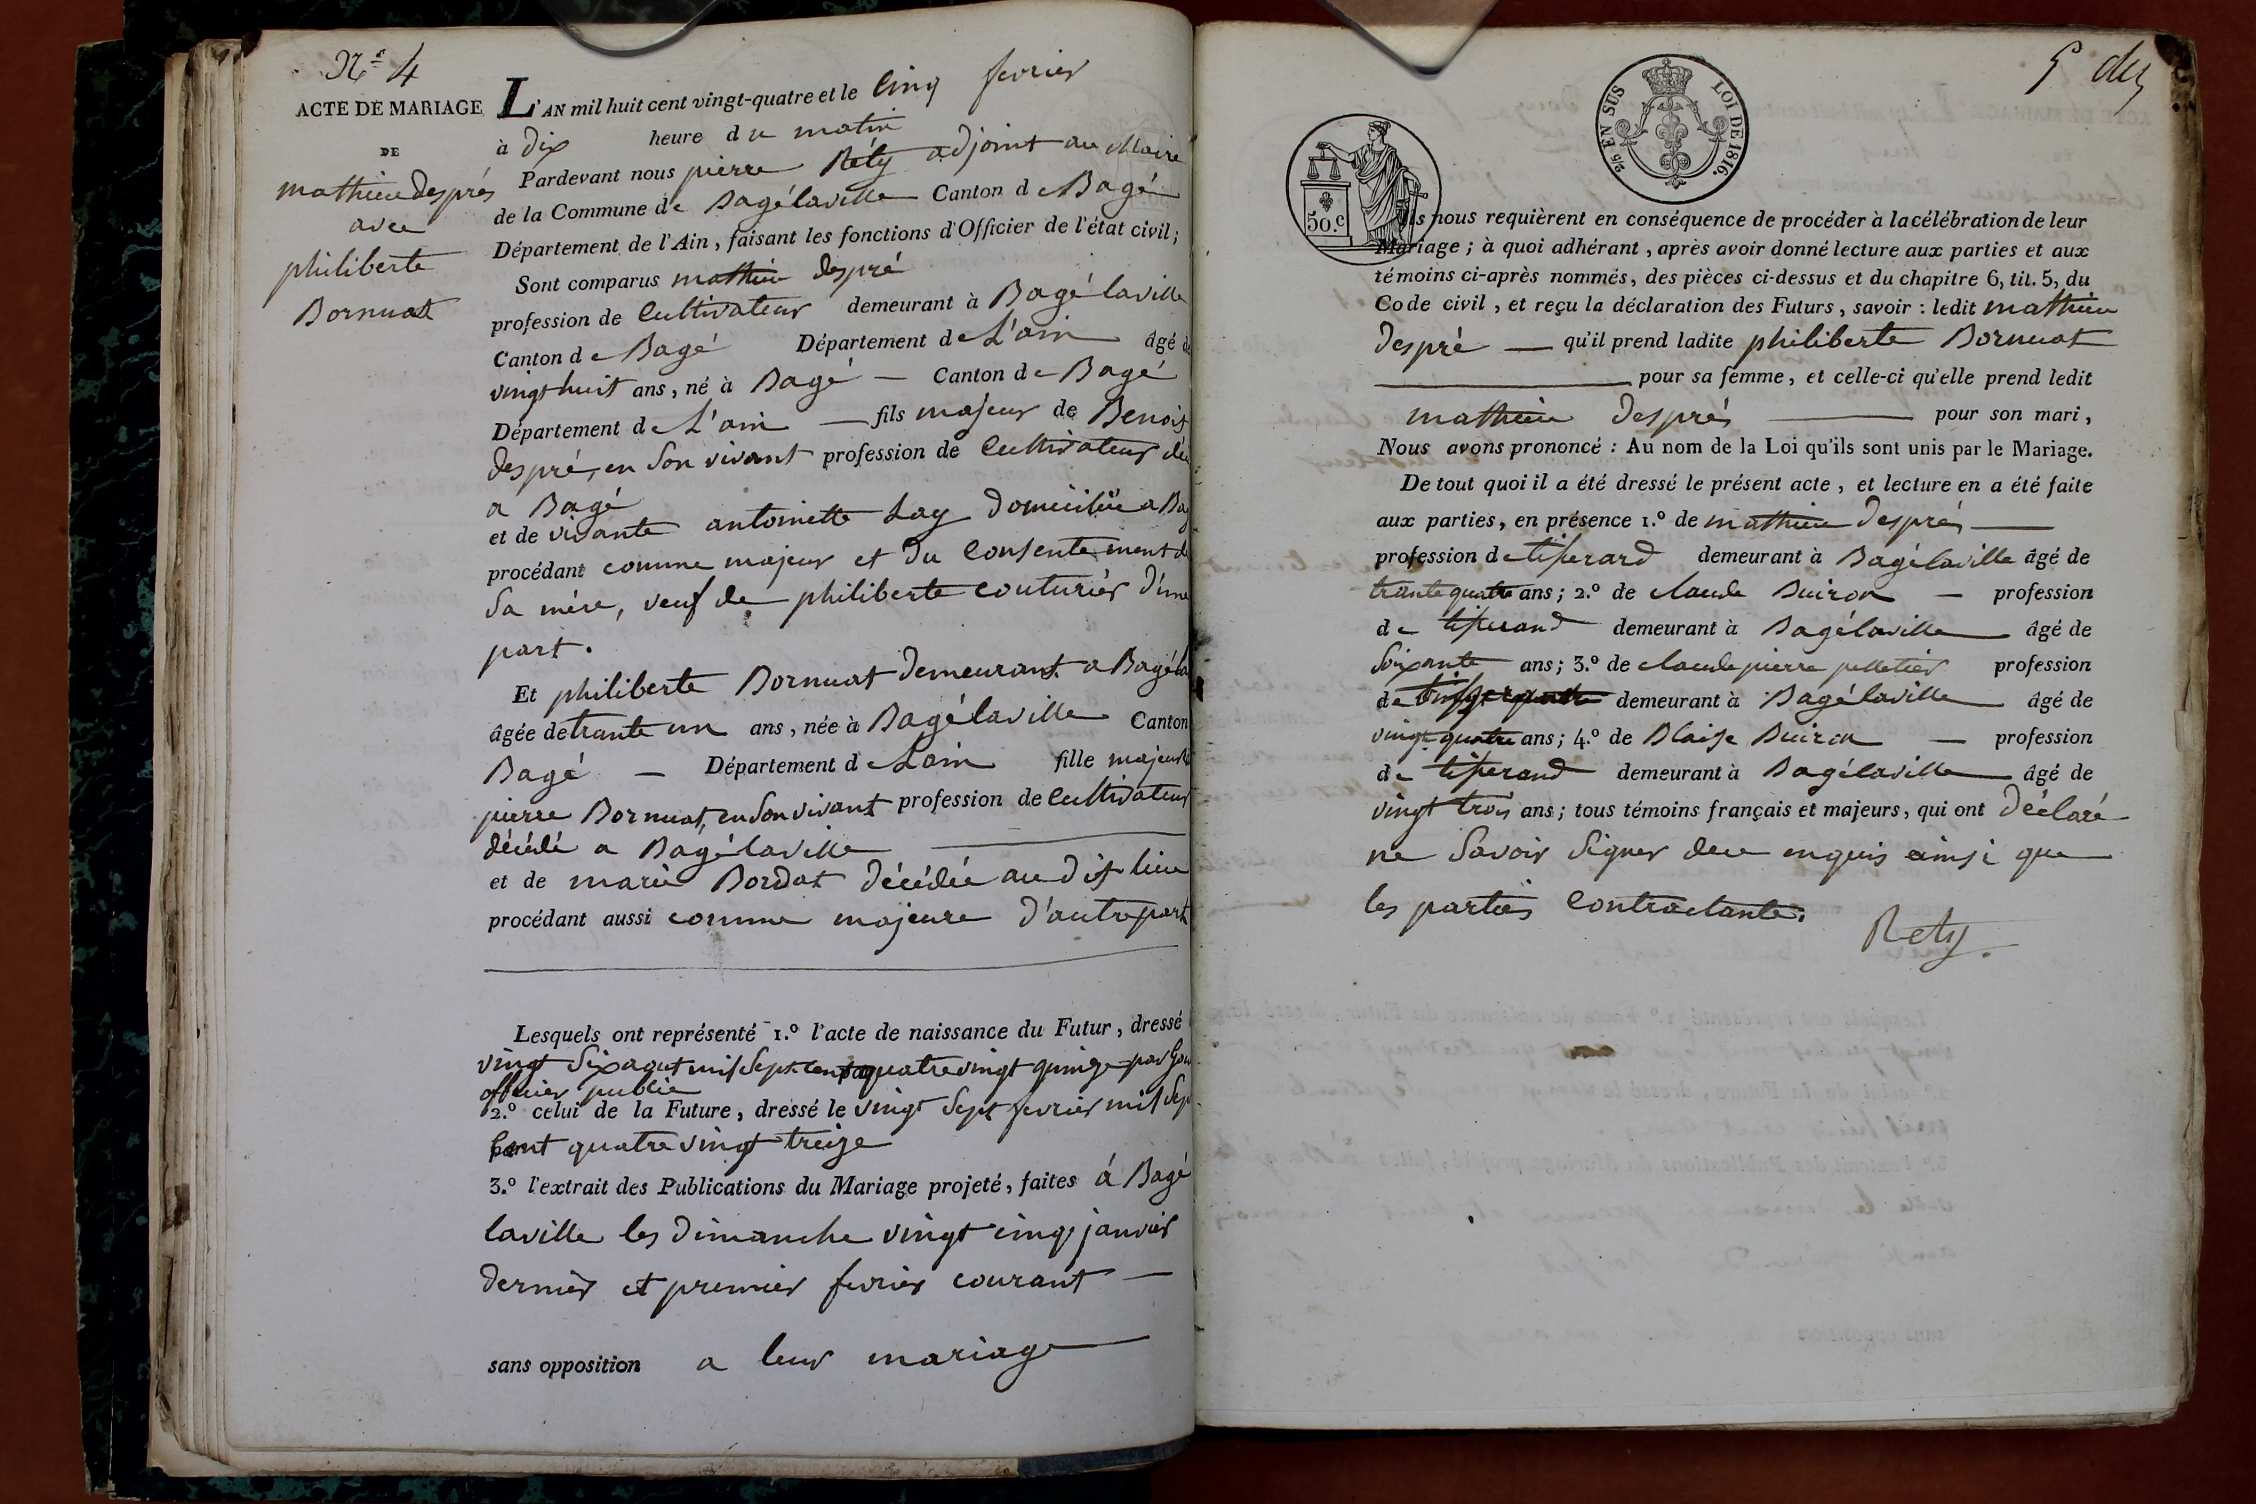 N.° 4
ACTE DE MARIAGE
DE
mathieu després
avec
philiberte
Bornuat
L'AN mil huit cent vingt-quatre et le cinq fevrier
à dix heure du matin
Pardevant nous pierre Réty adjoint au Maire
de la Commune de Bagélaville Canton de Bagé
Département de l'Ain, faisant les fonctions d'Officier de l'état civil;
Sont comparus mathieu despré
profession de cultivateur demeurant à Bagélaville
Canton de Bagé Département de L'ain âgé de
vingt huit ans, né à Bagé — Canton de Bagé
Département de L'ain — fils majeur de Benoit
despré, en son vivant profession de cultivateur
a Bagé
et de vivante antoinette Lay domiciliée a
procédant comme majeur et du consentement de
sa mére, veuf de philiberte couturier d'une
part.
Et philiberte Bornuat demeurant a
âgée de trante un ans, née à Bagélaville Canton
Bagé — Département de Lain fille majeure
pierre Bornuat, en son vivant profession de cultivateur
décédé a Bagélaville
et de marie Bordat décédée au dit lieu
procédant aussi comme majeure d'autre part
Lesquels ont représenté 1.° l'acte de naissance du Futur, dressé
vingt six aout mil sept cent quatre vingt quinze par
officier public
2.° celui de la Future, dressé le vingt sept fevrier mil sept
cent quatre vingt treize
3.° l'extrait des Publications du Mariage projeté, faites á Bagé
laville les dimanche vingt cinq janvier
dernier et premier fevrier courant —
sans opposition a leur mariage
5
2/5 EN SUS LOI DE 1816.
50.c
Ils nous requièrent en conséquence de procéder à la célébration de leur
Mariage; à quoi adhérant, après avoir donné lecture aux parties et aux
témoins ci-après nommés, des pièces ci-dessus et du chapitre 6, tit. 5, du
Code civil, et reçu la déclaration des Futurs, savoir: ledit mathieu
despré — qu'il prend ladite philiberte Bornuat
pour sa femme, et celle-ci qu'elle prend ledit
mathieu després pour son mari,
Nous avons prononcé: Au nom de la Loi qu'ils sont unis par le Mariage.
De tout quoi il a été dressé le présent acte, et lecture en a été faite
aux parties, en présence 1.° de mathieu després
profession de tiserard demeurant à Bagélaville âgé de
trante quatre ans; 2.° de claude Buiron — profession
de tiserand demeurant à Bagélaville âgé de
soixante ans; 3.° de claude pierre pelletier profession
de demeurant à Bagélaville âgé de
vingt quatre ans; 4.° de Blaise Buiron — profession
de tiserand demeurant à Bagélaville âgé de
vingt trois ans; tous témoins français et majeurs, qui ont déclaré
ne savoir signer de ce enquis ainsi que
les parties contractante.
Rety.